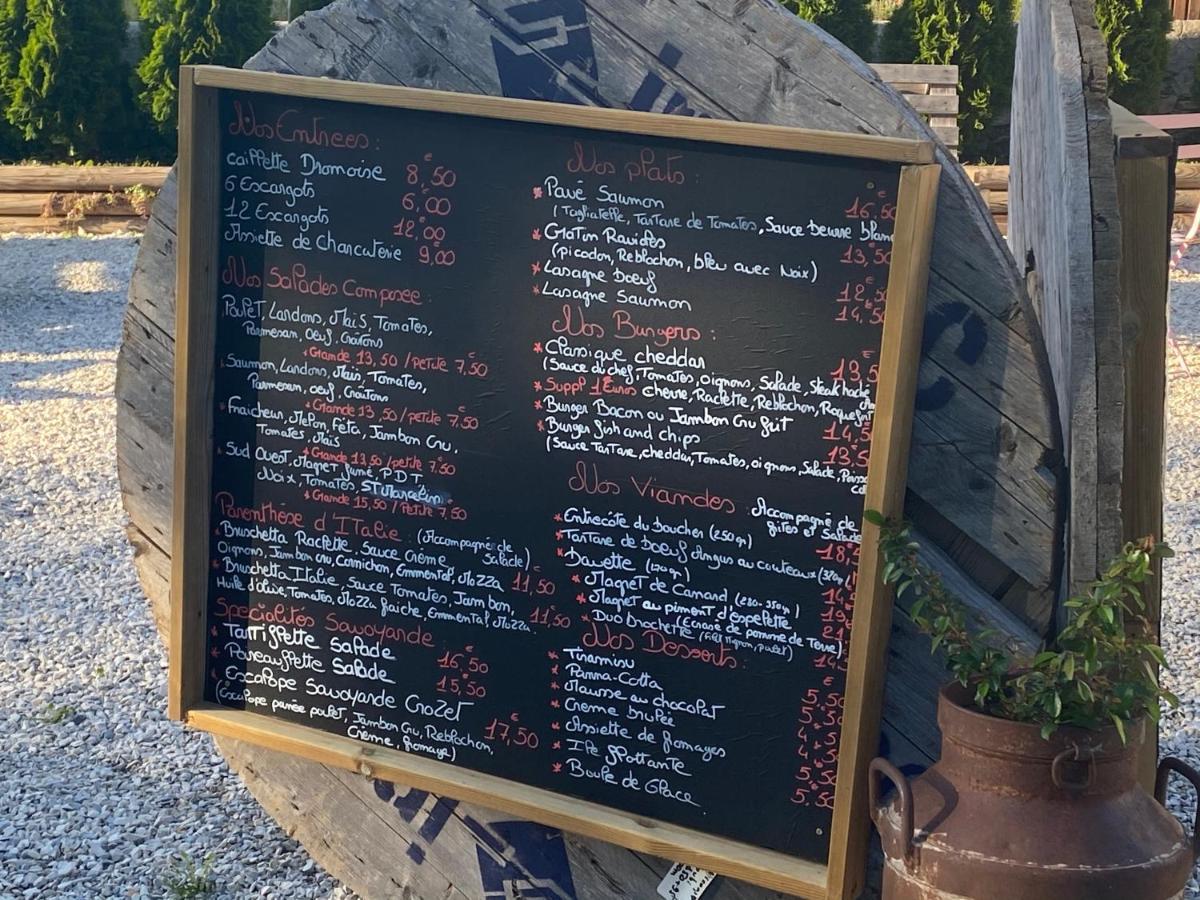 Nos Entrees :
Caillette Dromoise 8,50€
6 Escargots 6,00
12 Escargots 12,00
Assiette de Charcuterie 9,00
Nos Salades Composee :
Poulet, Lardons, Maïs, Tomates,
Parmesan, Oeuf, Croûtons
+ Grande 13,50 / Petite 7,50
Saumon, Lardons, Maïs, Tomates,
Parmesan, oeuf, Croûtons
+ Grande 13,50 / petite 7,50
Fraicheur, Melon, Féta, Jambon Cru,
Tomates, Maïs
+ Grande 13,50 / petite 7,50
Sud Ouest, Magret fumé, P.D.T,
Noix, Tomates, ST Marcelin
+ Grande 15,50 / Petite 7,50
Parenthèse d'Italie : (Accompagnée de
Salade)
* Bruschetta Raclette, Sauce Crème
Oignons, Jambon cru, Cornichon, Emmental, Mozza 11,50€
* Bruschetta Italie, Sauce Tomates, Jambon,
Huile d'Olive, Tomates, Mozza fraiche, Emmental, Mozza. 11,50
Spécialités Savoyarde
* Tartiflette Salade 16,50€
* Poireauflette Salade 15,50
* Escalope Savoyarde Crozet
(Escalope panée poulet, Jambon Cru, Reblochon, 17,50€
Crème, fromage)
Nos plats :
* Pavé Saumon 16,50
(Tagliatelle, Tartare de Tomates, Sauce beurre blanc
* Gratin Ravioles 13,50
(picodon, Reblochon, bleu avec Noix)
* Lasagne boeuf 12,50
* Lasagne Saumon 14,50
Nos Burgers :
* Classique cheddar 13,5
(Sauce du chef, Tomates, oignons, Salade, Steak haché
* Suppl 1 Euros chèvre, Raclette, Reblochon, Roquefort
* Burger Bacon ou Jambon Cru frit 14,5
* Burger fish and chips 13,5
(Sauce Tartare, cheddar, Tomates, oignons, Salade, Poisso
Nos Viandes : Accompagné de
frites et Salade
* Entrecôte du boucher (250gr) 18,
* Tartare de boeuf Angus au couteaux
* Bavette
* Magret de Canard
* Magret au piment d'espelette
(Ecrasé de pomme de Terre)
* Duo brochette (Filet Mignon, poulet) 14,
Nos Desserts :
* Tiramisu 5.50
* Panna-Cotta
* Mousse au chocolat
* Creme Brulée
* Assiette de fromages
* Ile flottante 5.50
* Boule de Glace